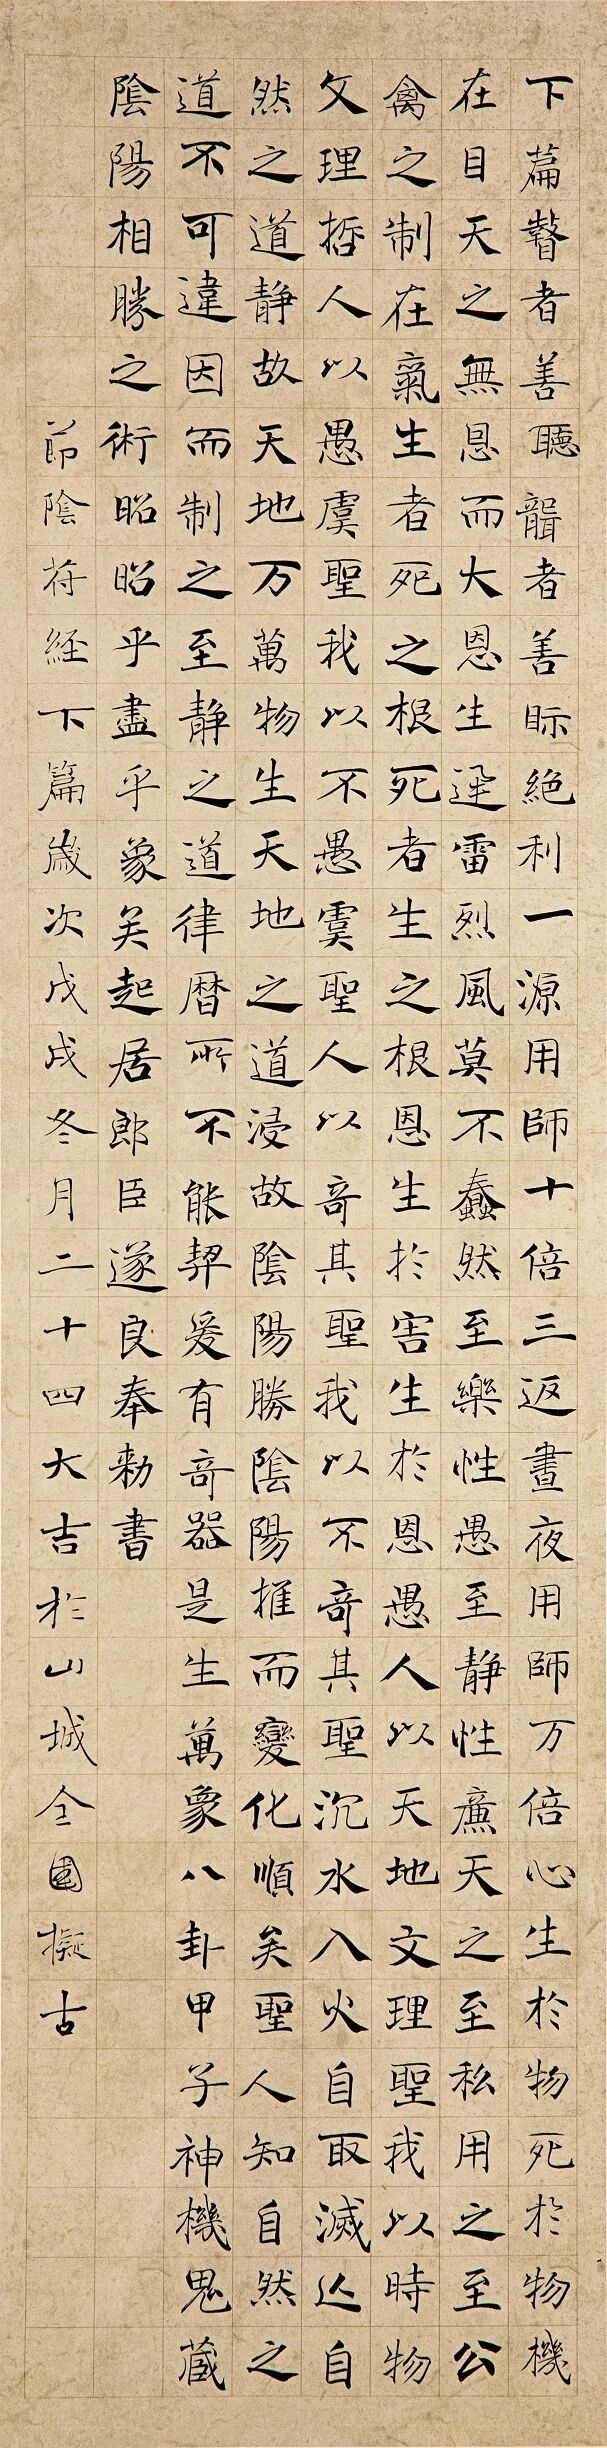 下萹瞽者善聽聾者善眎絕利一源用師十倍三返晝夜用師万倍心生於物死於物機
在目天之無恩而大恩生迅雷烈風莫不蠢然至樂性愚至靜性廉天之至私用之至公
禽之制在氣生者死之根死者生之根恩生於害生於恩愚人以天地文理聖我以時物
文理哲人以愚虞聖我以不愚虞聖人以奇其聖我以不奇其聖沉水入火自取滅亡自
然之道靜故天地万萬物生天地之道浸故陰陽勝陰陽推而變化順矣聖人知自然之
道不可違因而制之至靜之道律曆所不能契爰有奇器是生萬象八卦甲子神機鬼藏
陰陽相勝之術昭昭乎盡乎象矣起居郎臣遂良奉勅書
節陰符經下篇歲次戊戌冬月二十四大吉於山城全國擬古